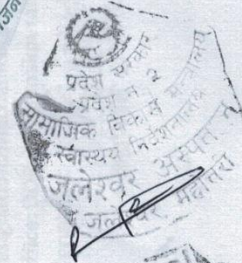 जन
प्रदेश सरकार
प्रदेश नं. २
सामाजिक विकास मन्त्रालय
स्वास्थ्य निर्देशनालय
जलेश्वर अस्पताल
जलेश्वर महोत्तरी